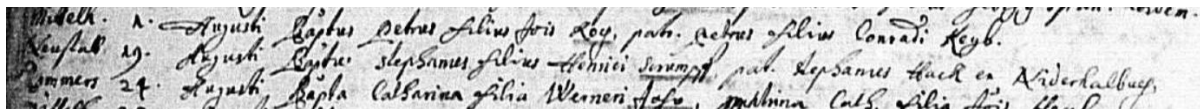 Mittelk. 1. Augusti Baptus Petrus filius Jois Roy, patr. Petrus filius Conradi Keyb.
Neustatt 19. Augusti Baptus Stephanus filius Henrici Scrumpf, pat. Stephanus Hack ex Niderkalbach
Sommers 24. Augusti Bapta Catharina filia Werneri matrina Cath. filia Jois